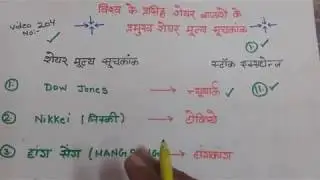 विश्व के प्रसिद्ध शेयर बाजारों के
video 204
No:-
प्रमुख शेयर मूल्य सूचकांक
शेयर मूल्य सूचकांक
स्टॉक एक्सचेन्ज
1. Dow Jones → न्यूयार्क ✓ 11. ✓
2. Nikkei (निक्की) → टोकियो
3. हांग सेंग (HANG → हांगकांग